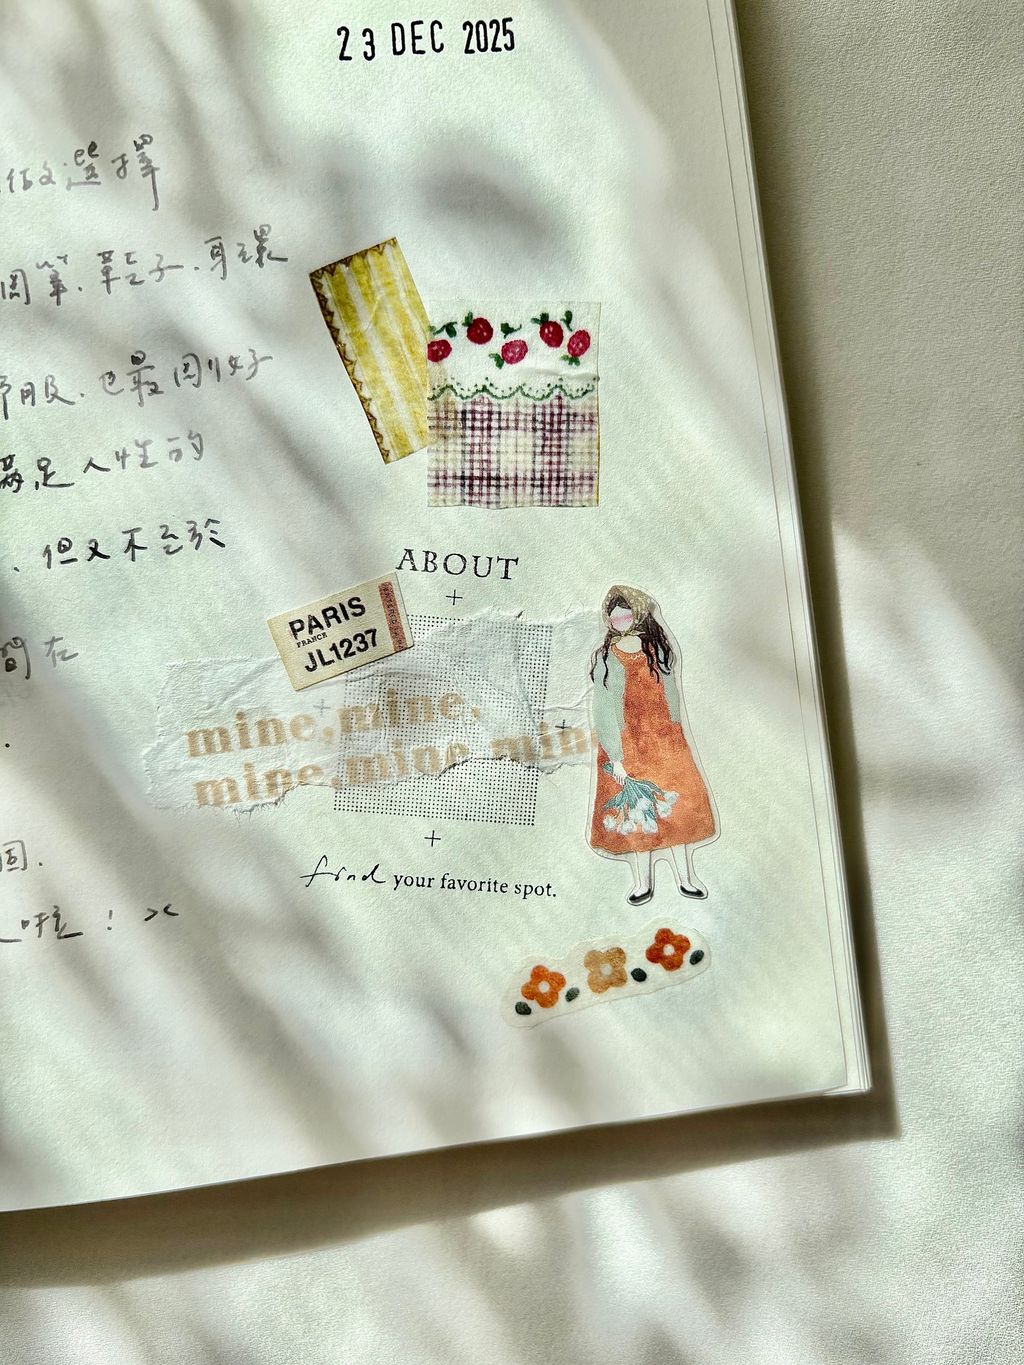 23 DEC 2025
做選擇
筆、鞋子、耳環
服、也最剛好
滿足人性的
、但又不至於
ABOUT
PARIS
FRANCE
JL1237
間在
mine,mine,
mine,mine,mine
固.
啦!><
find your favorite spot.